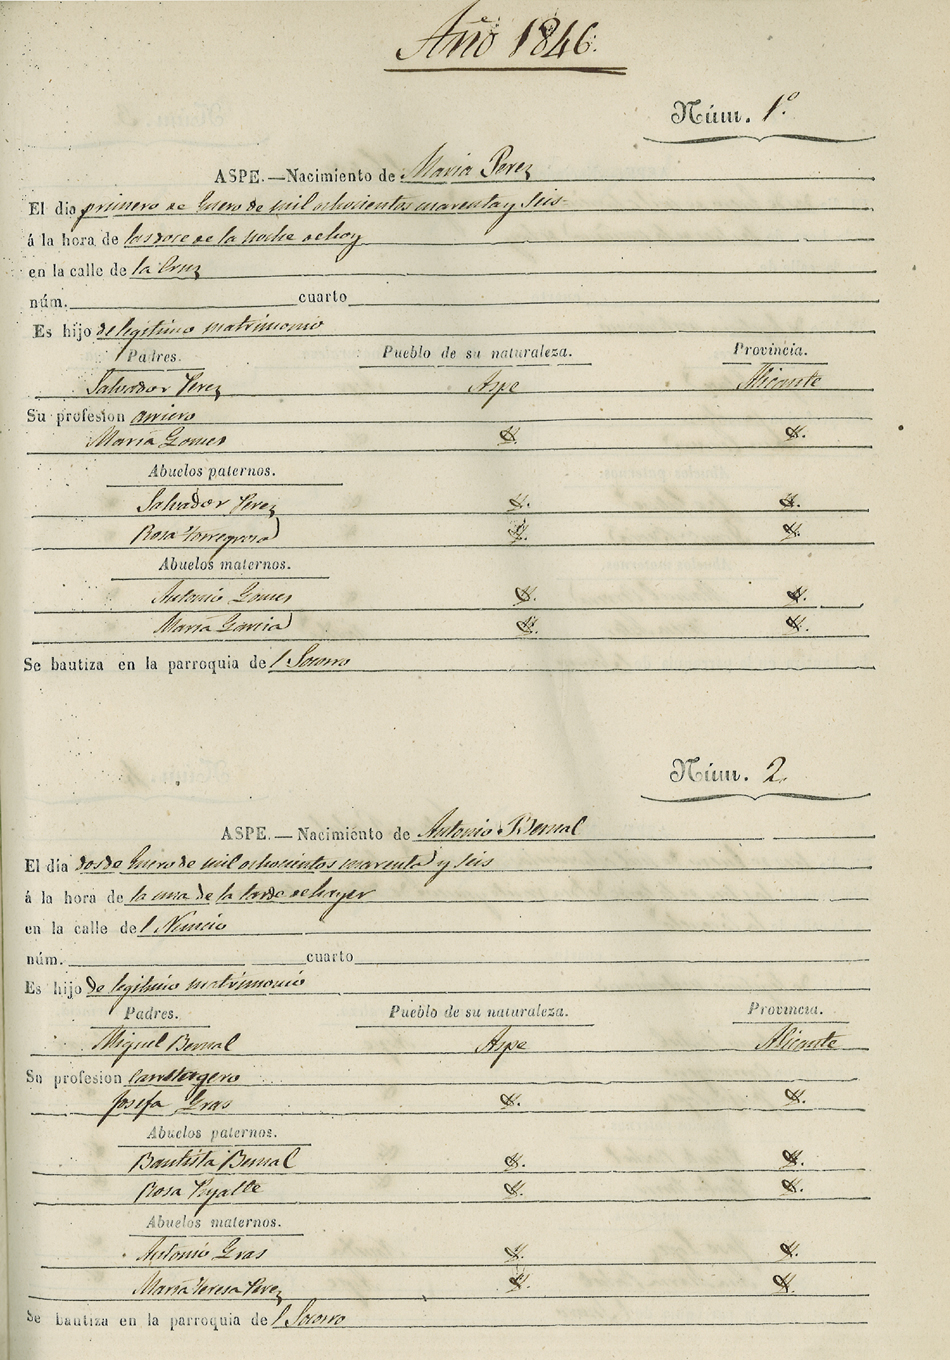 Año 1846.
Núm. 1º
ASPE.—Nacimiento de Maria Perez
El dia primero de Enero de mil ochocientos cuarenta y seis
á la hora de las doce de la noche de hoy
en la calle de la Cruz
núm. cuarto
Es hijo de legitimo matrimonio
Padres. Pueblo de su naturaleza. Provincia.
Salvador Perez Aspe Alicante
Su profesion arriero
Maria Gomes
Abuelos paternos.
Salvador Perez
Rosa Torregrosa
Abuelos maternos.
Antonio Gomes
Maria Garcia
Se bautiza en la parroquia del Socorro
Núm. 2.
ASPE.—Nacimiento de Antonio Bernal
El dia dos de Enero de mil ochocientos cuarenta y seis
á la hora de la una de la tarde de hayer
en la calle del Nuncio
núm. cuarto
Es hijo de legitimo matrimonio
Padres. Pueblo de su naturaleza. Provincia.
Miguel Bernal Aspe Alicante
Su profesion
Josefa Gras
Abuelos paternos.
Bautista Bernal
Rosa
Abuelos maternos.
Antonio Gras
Maria Teresa Perez
Se bautiza en la parroquia del Socorro